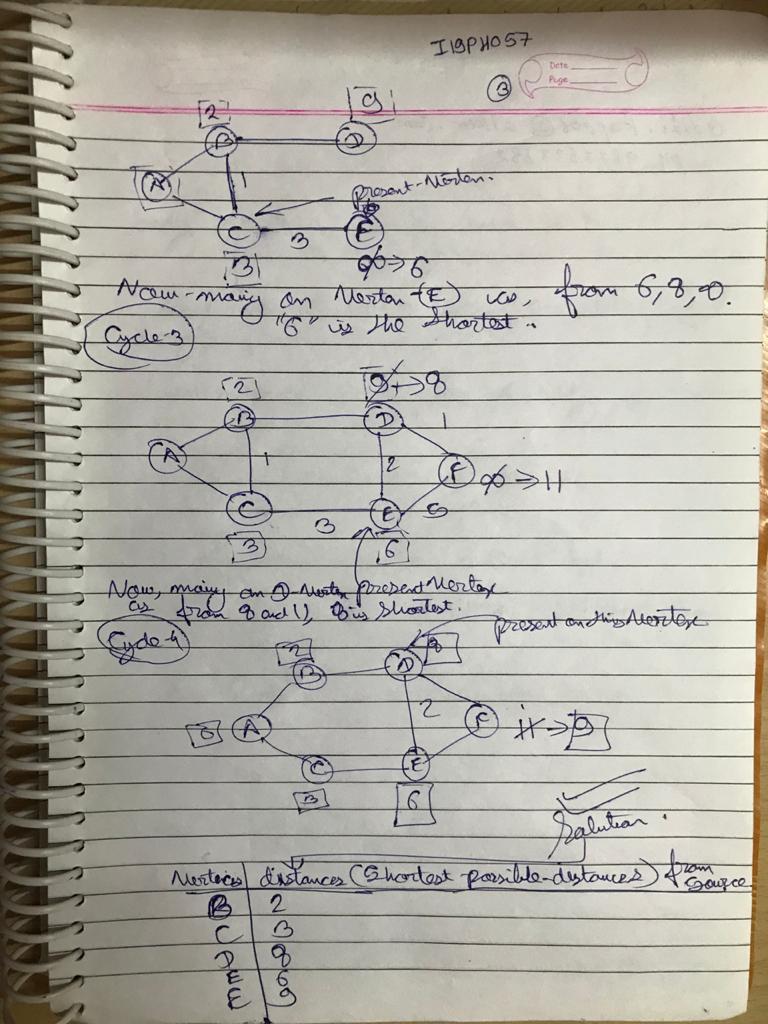 I19PH057
3
Date
Page
2
9
B
D
A
1
present-Vertex.
C
3
E
3
∞→6
Now moving on Vertex (E) as, from 6, 8, ∞.
"6" is the shortest..
Cycle-3
2
9→8
B
D
1
A
1
2
F
∞→11
C
3
E
5
3
6
Now, moving on D-Vertex present Vertex
as from 8 and 11, 8 is shortest.
Cycle-4
present on this Vertex
2
8
B
D
2
0
A
F
11→9
C
E
3
6
Solution.
Vertices distances (Shortest possible-distances) from source
B 2
C 3
D 8
E 6
E 9